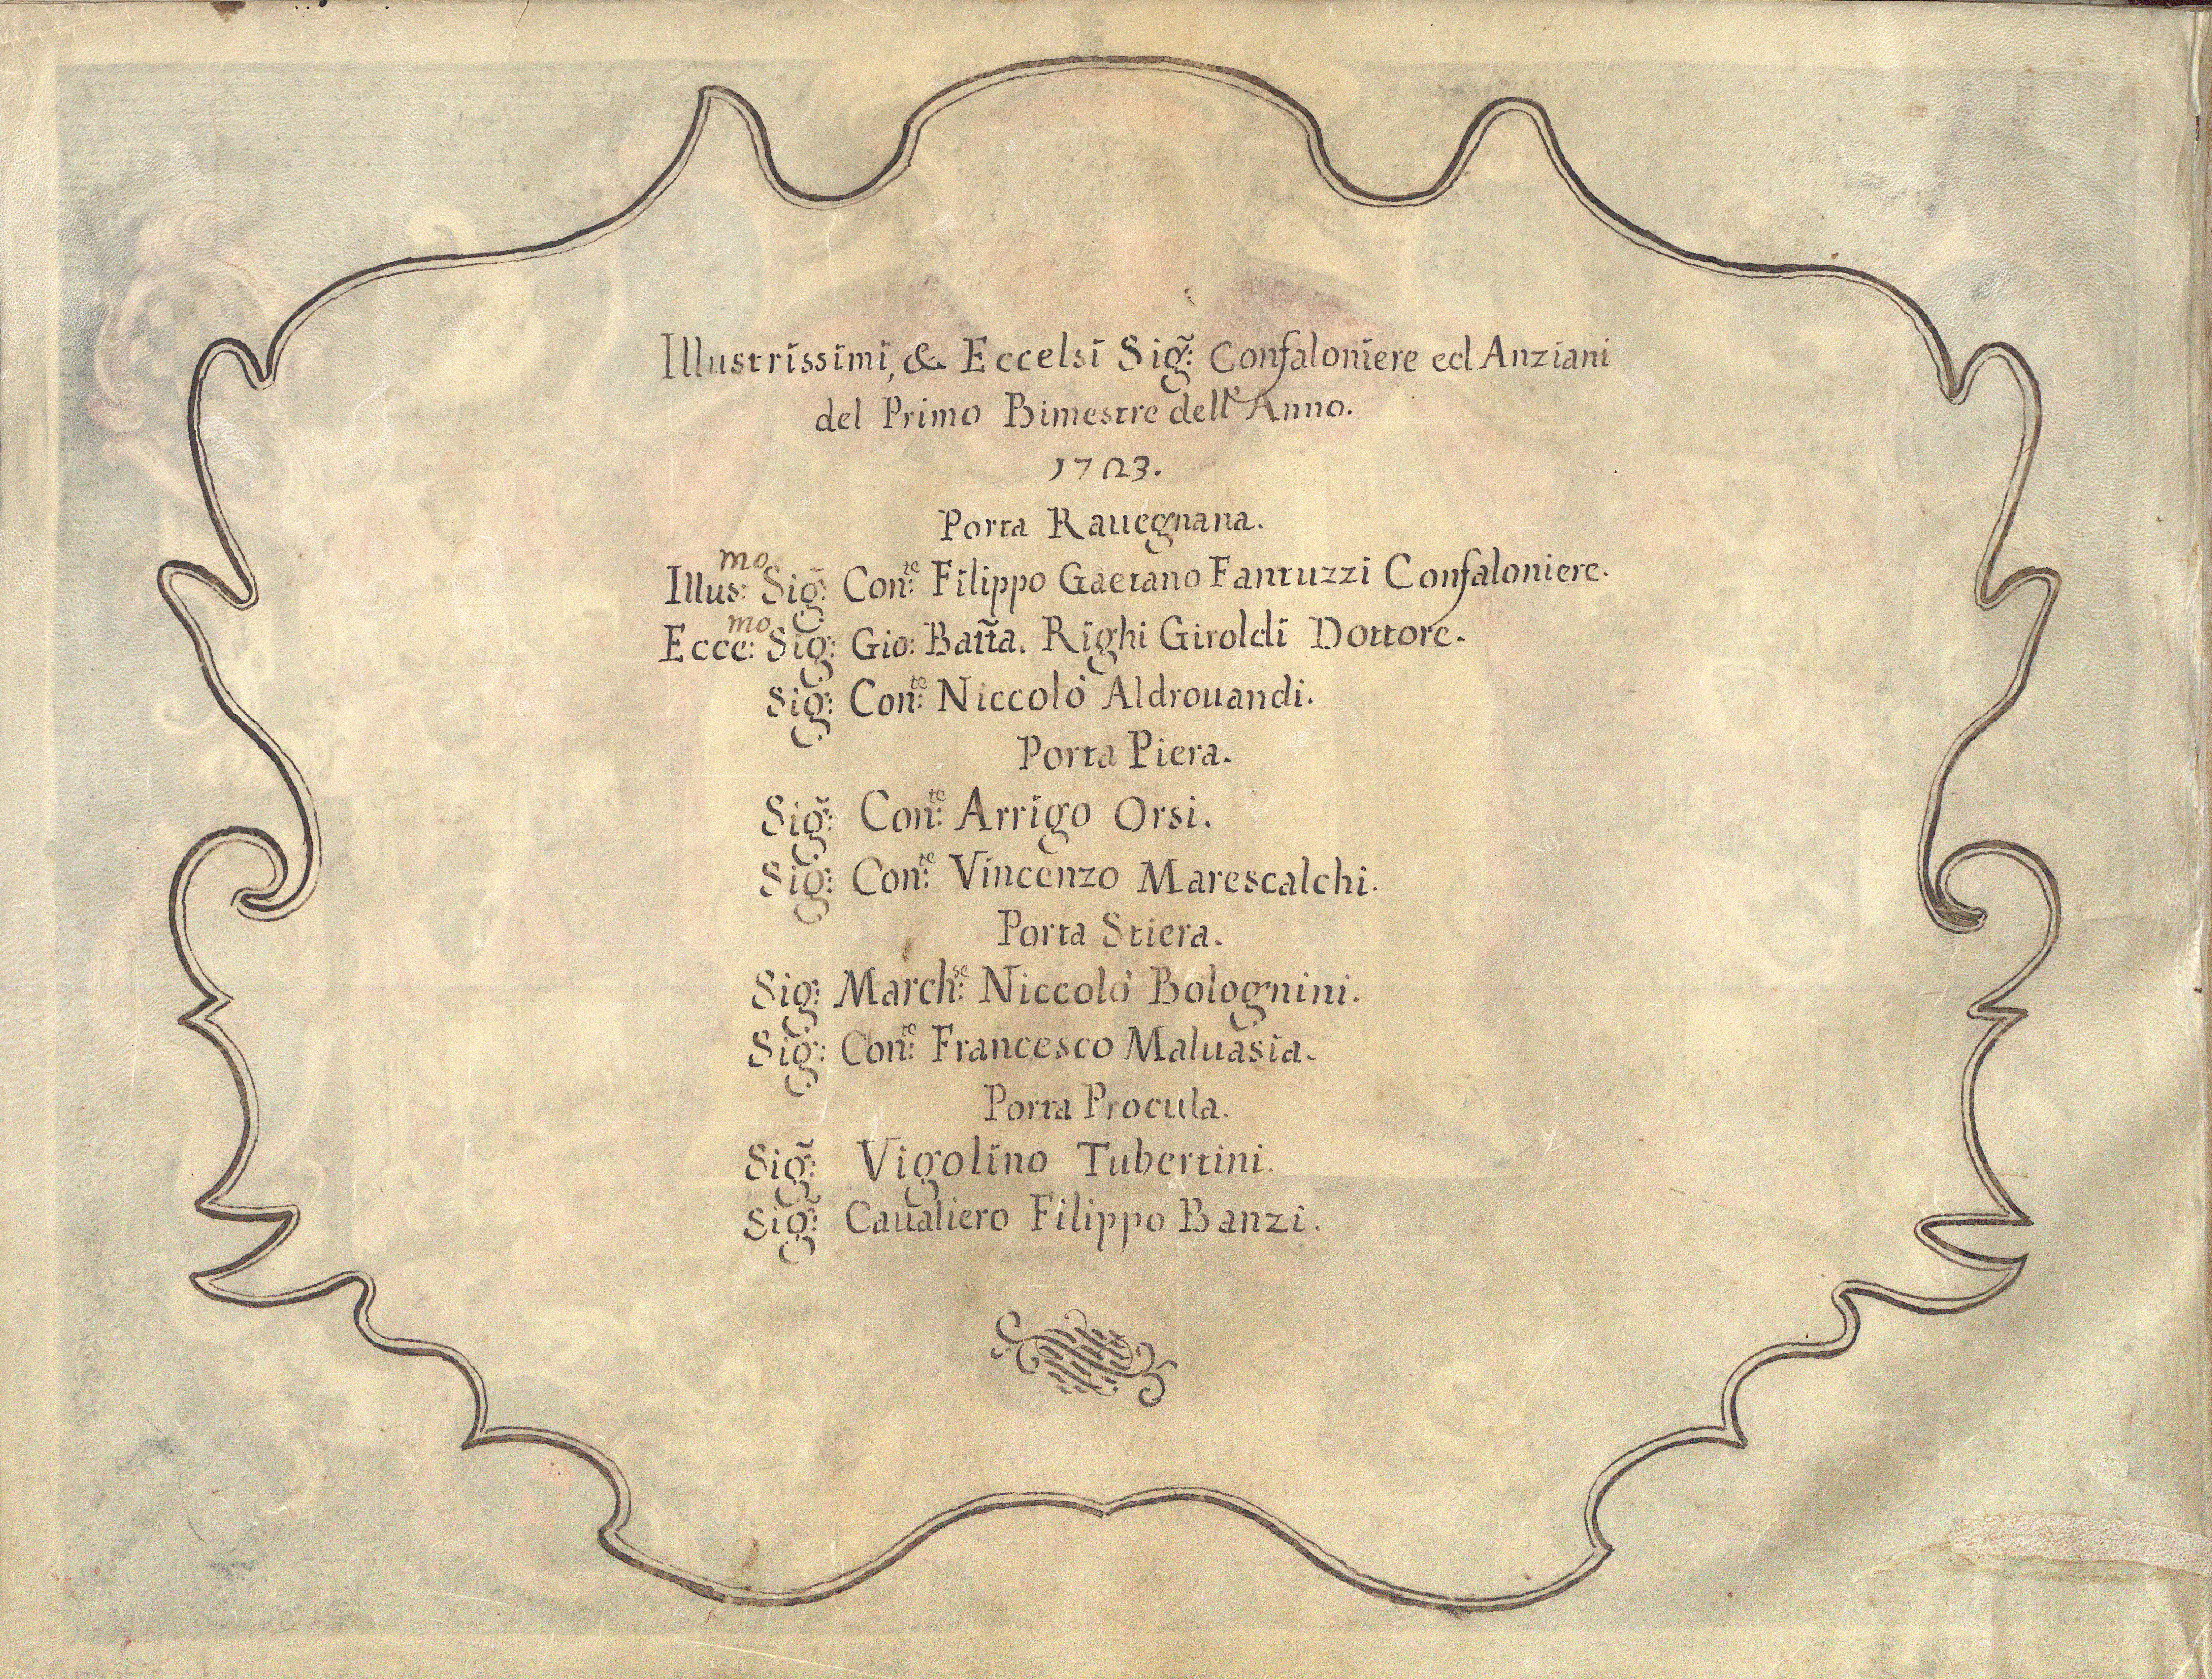 Illustrissimi, & Eccelsi Sig̃: Confaloniere ed Anziani
del Primo Bimestre dell'Anno.
1723.
Porta Rauegnana.
Illus:mo Sig̃: Con:te Filippo Gaetano Fantuzzi Confaloniere.
Ecce:mo Sig: Gio: Batt̃a. Righi Giroldi Dottore.
Sig: Con:te Niccolò Aldrouandi.
Porta Piera.
Sig̃: Con:te Arrigo Orsi.
Sig: Con:te Vincenzo Marescalchi.
Porta Stiera.
Sig: March:se Niccolò Bolognini.
Sig: Con:te Francesco Maluasia.
Porta Procula.
Sig̃: Vigolino Tubertini.
Sig̃: Caualiero Filippo Banzi.